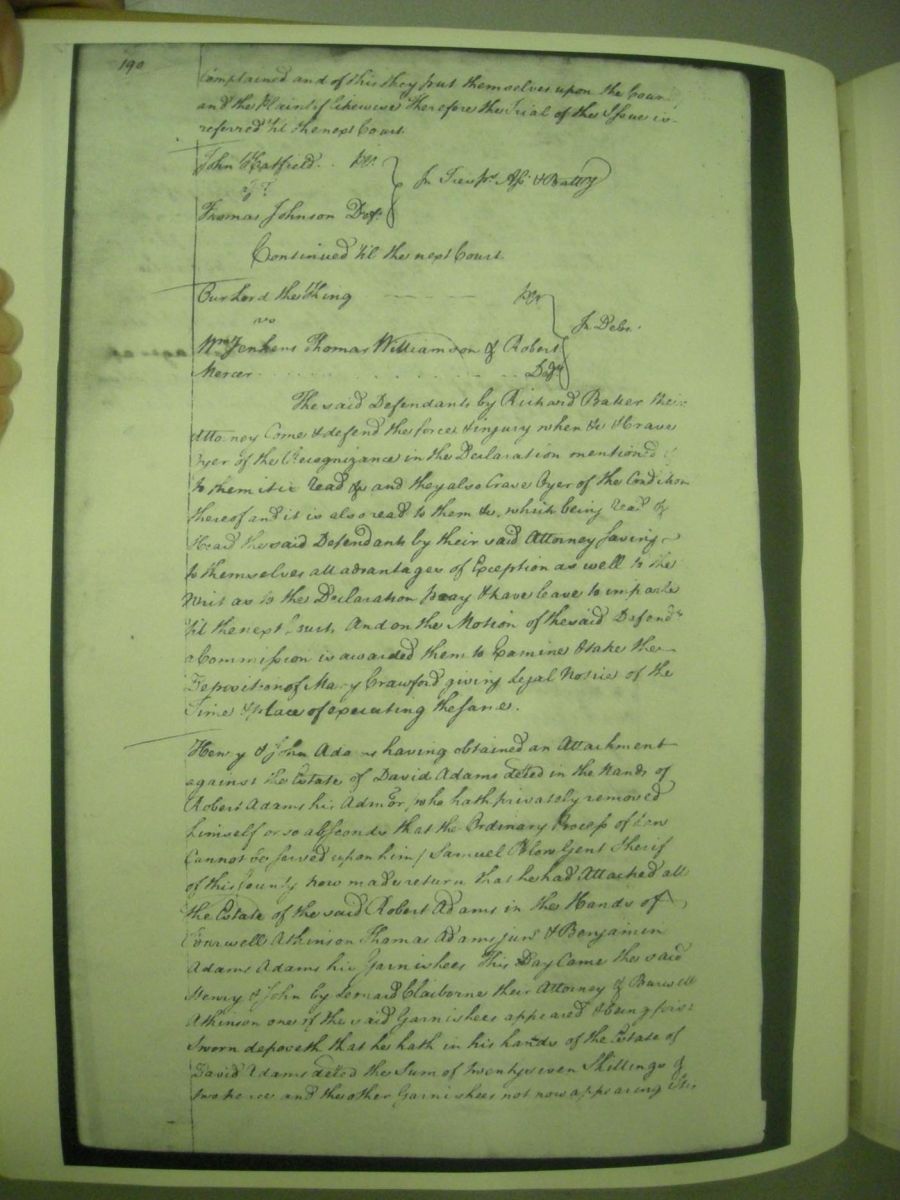 190
Complained and of this they put themselves upon the Coun
and the Plaintif likewise Therefore the Trial of the Issue is
referred 'til the next Court
John Hatfield
agt
Thomas Johnson Deft
In Tresps Asst & Battry
Continued 'til the next Court
Our Lord the King
vs
Wm Jenkens Thomas Williamson & Robert
Mercer Defts
In Debt
The said Defendants by Richard Baker their
Attorney Come & defend the force & injury when &c & Crave
Oyer of the Recognizance in the Declaration mentioned &
to them it is read &c and they also Crave Oyer of the Condition
thereof and it is also read to them &c. which being read &
Heard the said Defendants by their said Attorney Saving
to themselves all advantages of Exception as well to the
Writ as to the Declaration pray & have leave to imparle
'til the next Court. And on the Motion of the said Defendts
a Commission is awarded them to Examine & take the
Deposition of Mary Crawford giving Legal Notice of the
Time & place of executing the same.
Henry & John Adams having obtained an Attachment
against the Estate of David Adams deced in the Hands of
Robert Adams his Admor (who hath privately removed
himself or so absconds that the Ordinary Process of Law
Cannot be served upon him) Samuel Blow Gent Sherif
of this County now made return that he had Attached all
the Estate of the said Robert Adams in the Hands of
Atkinson Thomas Adams junr & Benjamin
Adams Adams his Garnishees This Day Came the said
Henry & John by Leonard Claiborne their Attorney & Burwell
Atkinson one of the said Garnishees appeared & being first
Sworn deposeth that he hath in his hands of the Estate of
David Adams deced the Sum of twenty seven Shillings &
two pence and the other Garnishees not now appearing